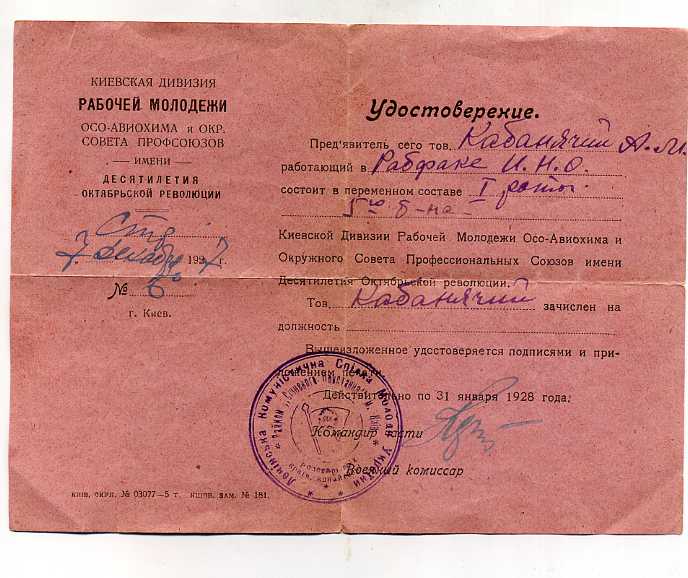 КИЕВСКАЯ ДИВИЗИЯ
РАБОЧЕЙ МОЛОДЕЖИ
ОСО-АВИОХИМА и ОКР.
СОВЕТА ПРОФСОЮЗОВ
— ИМЕНИ —
ДЕСЯТИЛЕТИЯ
ОКТЯБРЬСКОЙ РЕВОЛЮЦИИ
7 декабря 1927 г.
№ 6
г. Киев.
Удостоверение.
Пред'явитель сего тов. Кабанячий А. М.
работающий в Рабфаке И. Н. О.
состоит в переменном составе I роты
5го б-на
Киевской Дивизии Рабочей Молодежи Осо-Авиохима и
Окружного Совета Профессиональных Союзов имени
Десятилетия Октябрьской революции.
Тов. Кабанячий зачислен на
должность
Вышеизложенное удостоверяется подписями и при-
ложением печати.
Действительно по 31 января 1928 года.
Командир части
Военный комиссар
Ленінська Комуністична Спілка Молоди України
КИІВ. ОКРЛ. № 03077—5 т. КШПВ. ЗАМ. № 181.